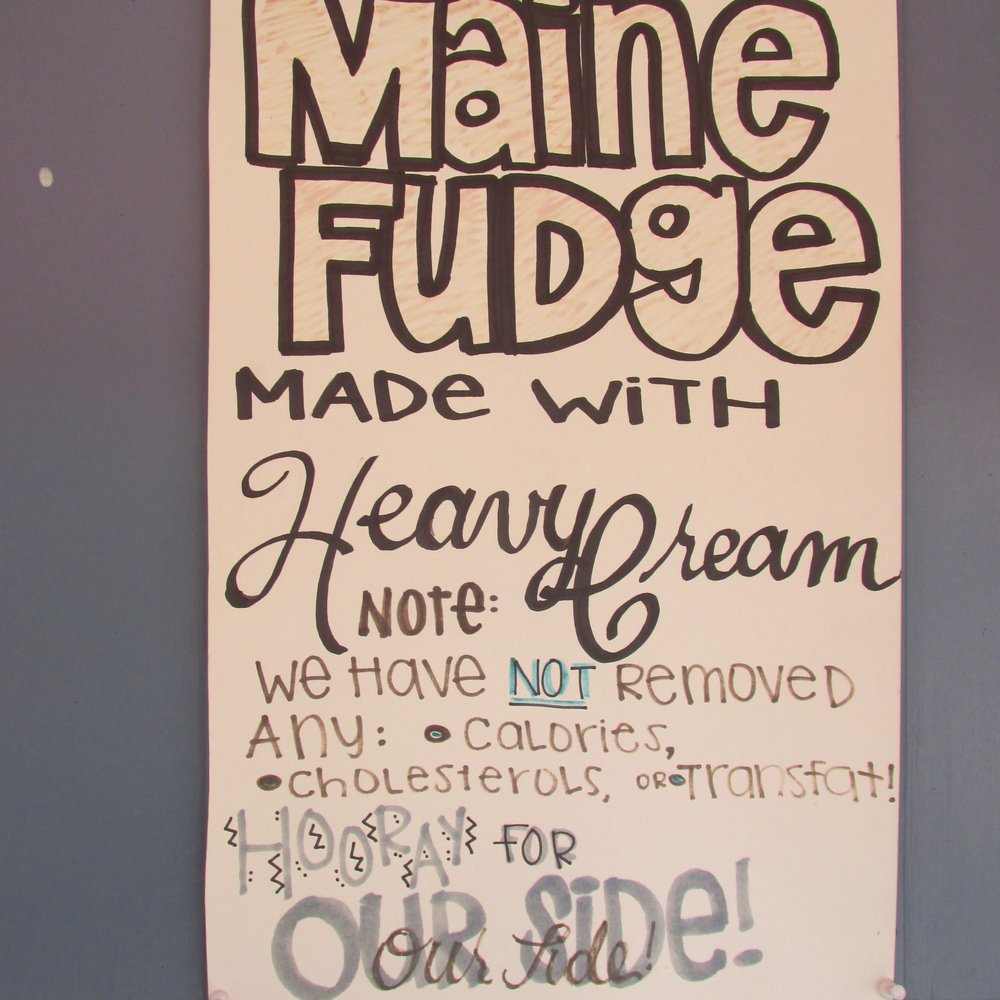 Maine
Fudge
Made with
Heavy Cream
Note:
We Have NOT Removed
Any: • Calories,
• Cholesterols, or • Transfat!
HOORAY FOR
OUR SiDe!
Our Side!